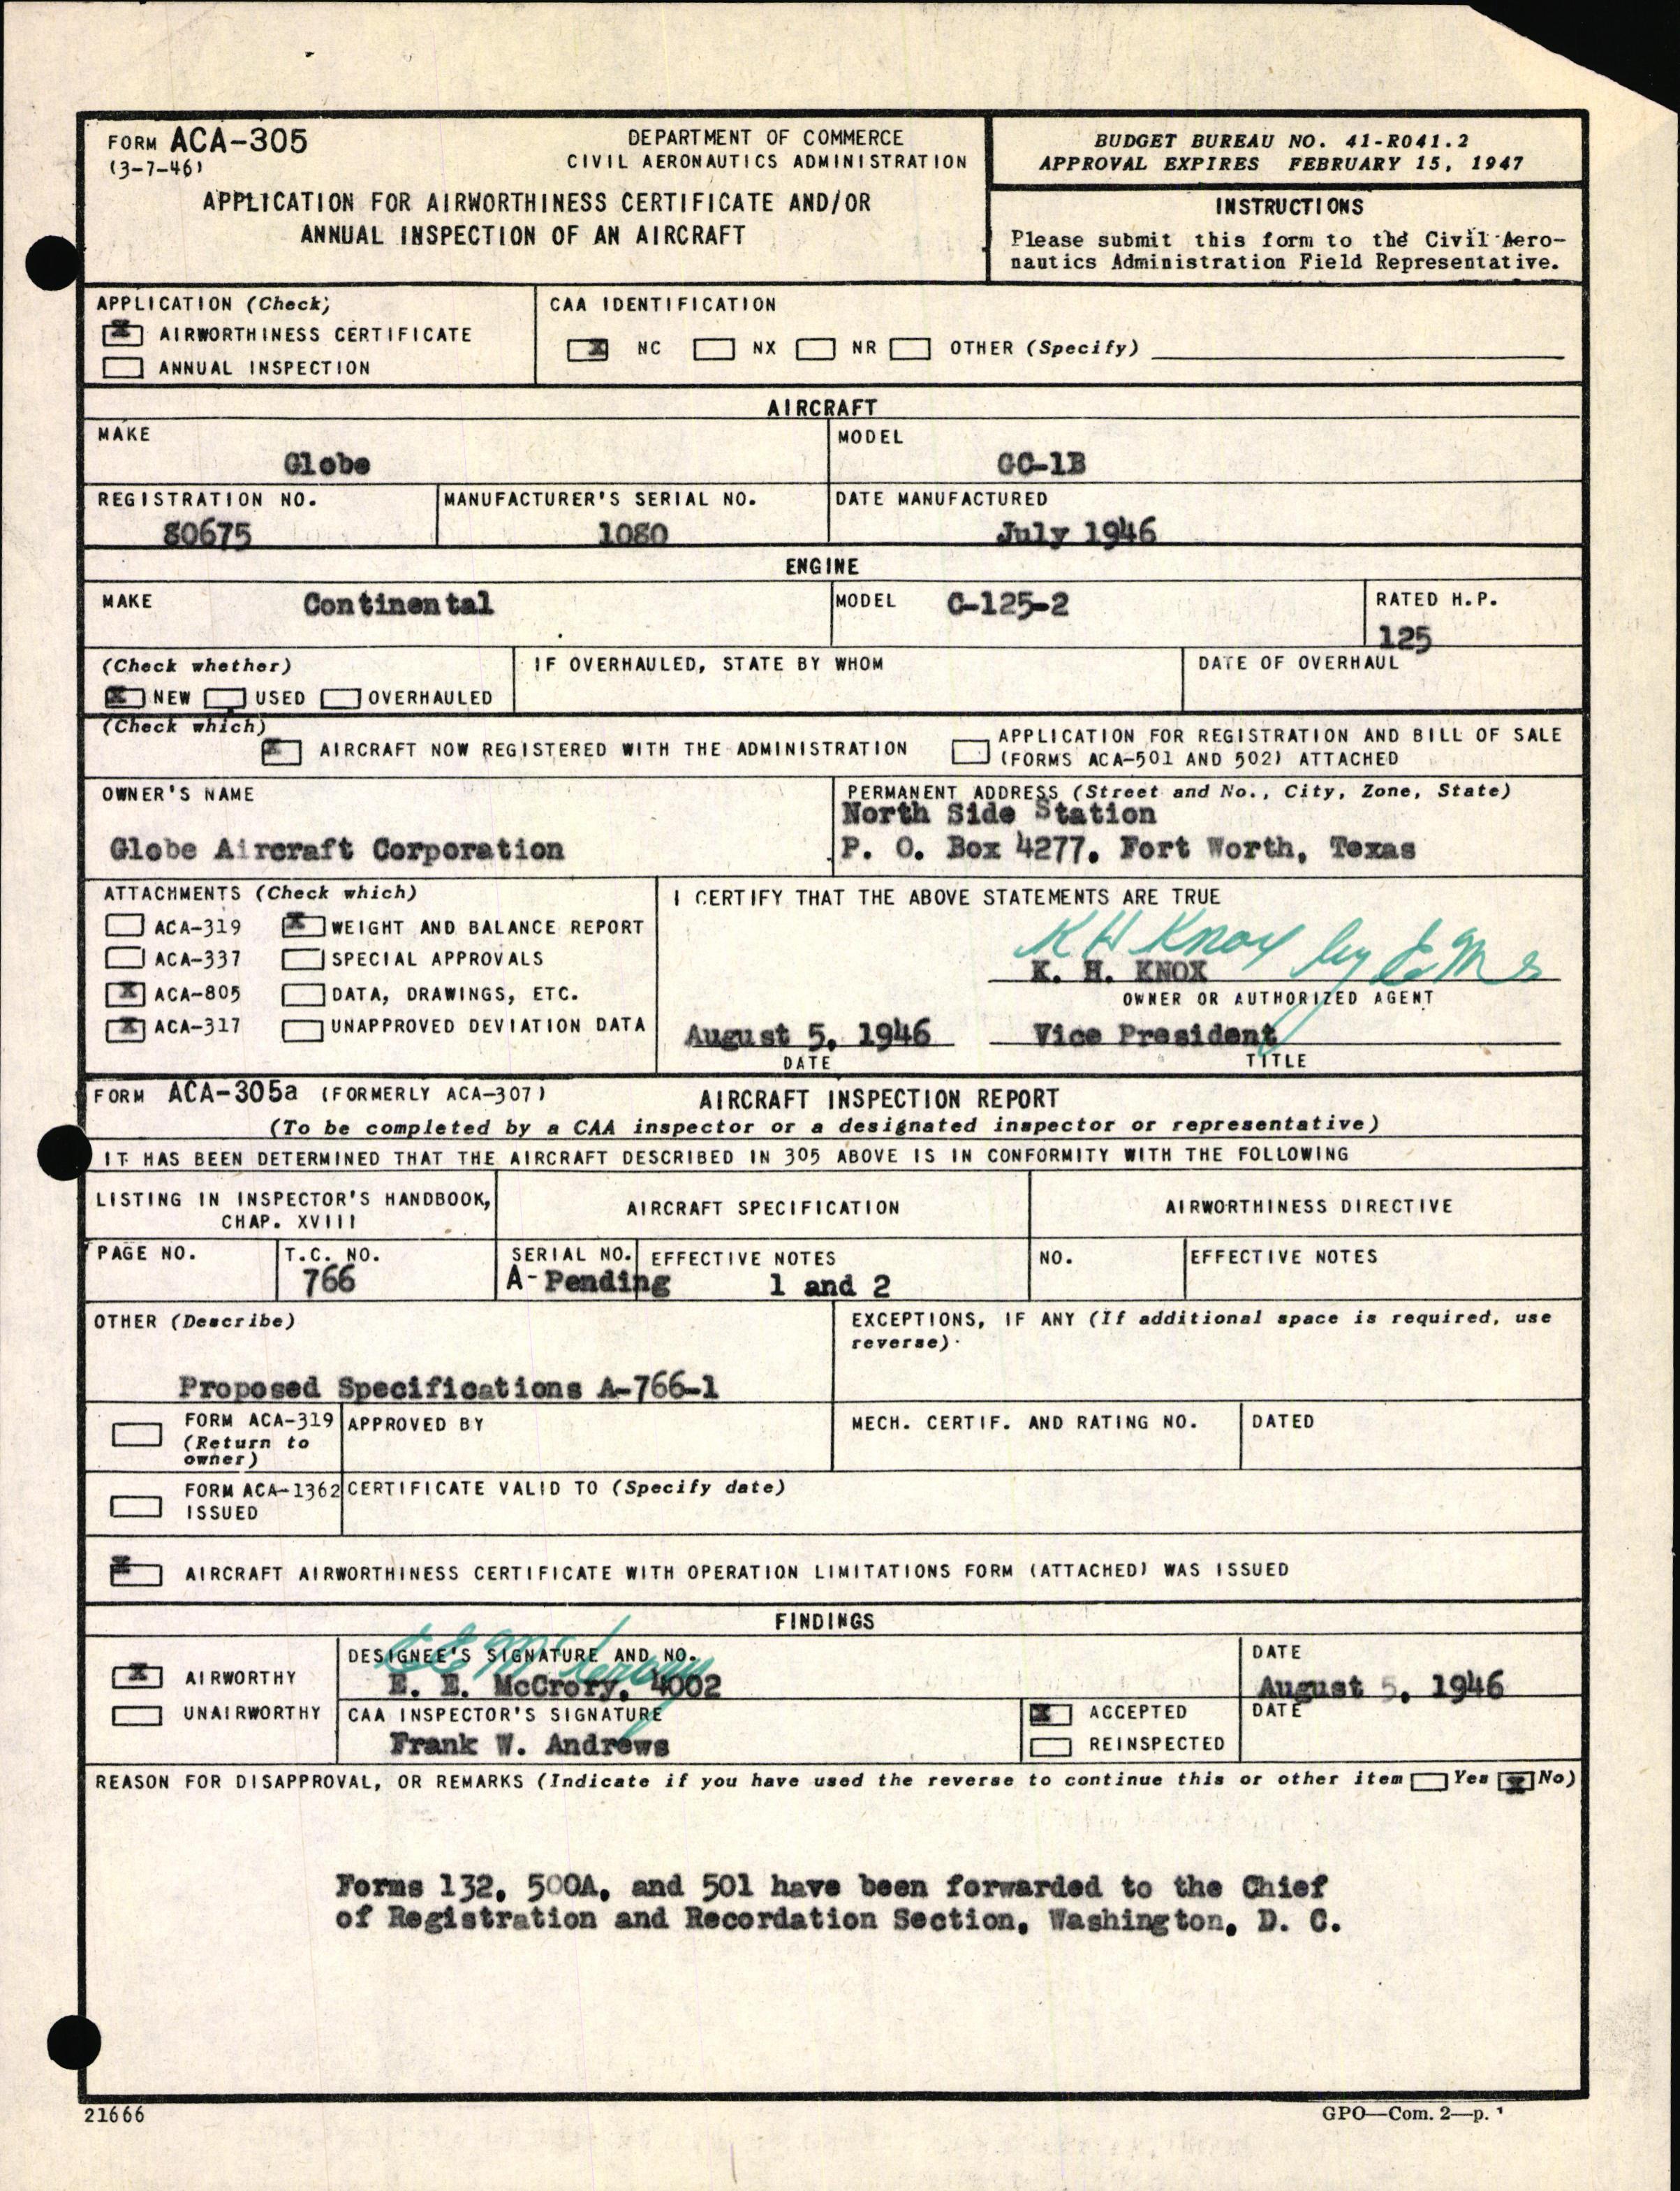 FORM ACA-305
(3-7-46)
DEPARTMENT OF COMMERCE
CIVIL AERONAUTICS ADMINISTRATION
APPLICATION FOR AIRWORTHINESS CERTIFICATE AND/OR
ANNUAL INSPECTION OF AN AIRCRAFT
BUDGET BUREAU NO. 41-R041.2
APPROVAL EXPIRES FEBRUARY 15, 1947
INSTRUCTIONS
Please submit this form to the Civil Aero-
nautics Administration Field Representative.
APPLICATION (Check)
X AIRWORTHINESS CERTIFICATE
ANNUAL INSPECTION
CAA IDENTIFICATION
X NC NX NR OTHER (Specify)
AIRCRAFT
MAKE
Globe
MODEL
GC-1B
REGISTRATION NO.
80675
MANUFACTURER'S SERIAL NO.
1080
DATE MANUFACTURED
July 1946
ENGINE
MAKE Continental
MODEL C-125-2
RATED H.P.
125
(Check whether)
X NEW USED OVERHAULED
IF OVERHAULED, STATE BY WHOM
DATE OF OVERHAUL
(Check which)
X AIRCRAFT NOW REGISTERED WITH THE ADMINISTRATION
APPLICATION FOR REGISTRATION AND BILL OF SALE
(FORMS ACA-501 AND 502) ATTACHED
OWNER'S NAME
Globe Aircraft Corporation
PERMANENT ADDRESS (Street and No., City, Zone, State)
North Side Station
P. O. Box 4277, Fort Worth, Texas
ATTACHMENTS (Check which)
ACA-319 X WEIGHT AND BALANCE REPORT
ACA-337 SPECIAL APPROVALS
X ACA-805 DATA, DRAWINGS, ETC.
X ACA-317 UNAPPROVED DEVIATION DATA
I CERTIFY THAT THE ABOVE STATEMENTS ARE TRUE
K H Knox by
K. H. KNOX
OWNER OR AUTHORIZED AGENT
August 5, 1946 Vice President
DATE TITLE
FORM ACA-305a (FORMERLY ACA-307) AIRCRAFT INSPECTION REPORT
(To be completed by a CAA inspector or a designated inspector or representative)
IT HAS BEEN DETERMINED THAT THE AIRCRAFT DESCRIBED IN 305 ABOVE IS IN CONFORMITY WITH THE FOLLOWING
LISTING IN INSPECTOR'S HANDBOOK,
CHAP. XVIII
AIRCRAFT SPECIFICATION
AIRWORTHINESS DIRECTIVE
PAGE NO.
T.C. NO.
766
SERIAL NO.
A-Pending
EFFECTIVE NOTES
1 and 2
NO.
EFFECTIVE NOTES
OTHER (Describe)
Proposed Specifications A-766-1
EXCEPTIONS, IF ANY (If additional space is required, use
reverse).
FORM ACA-319
(Return to
owner)
APPROVED BY
MECH. CERTIF. AND RATING NO.
DATED
FORM ACA-1362
ISSUED
CERTIFICATE VALID TO (Specify date)
X AIRCRAFT AIRWORTHINESS CERTIFICATE WITH OPERATION LIMITATIONS FORM (ATTACHED) WAS ISSUED
FINDINGS
X AIRWORTHY
UNAIRWORTHY
DESIGNEE'S SIGNATURE AND NO.
E E McCrory
E. E. McCrory, 4002
DATE
August 5, 1946
CAA INSPECTOR'S SIGNATURE
Frank W. Andrews
X ACCEPTED
REINSPECTED
DATE
REASON FOR DISAPPROVAL, OR REMARKS (Indicate if you have used the reverse to continue this or other item Yes X No)
Forms 132, 500A, and 501 have been forwarded to the Chief
of Registration and Recordation Section, Washington, D. C.
21666
GPO—Com. 2—p.